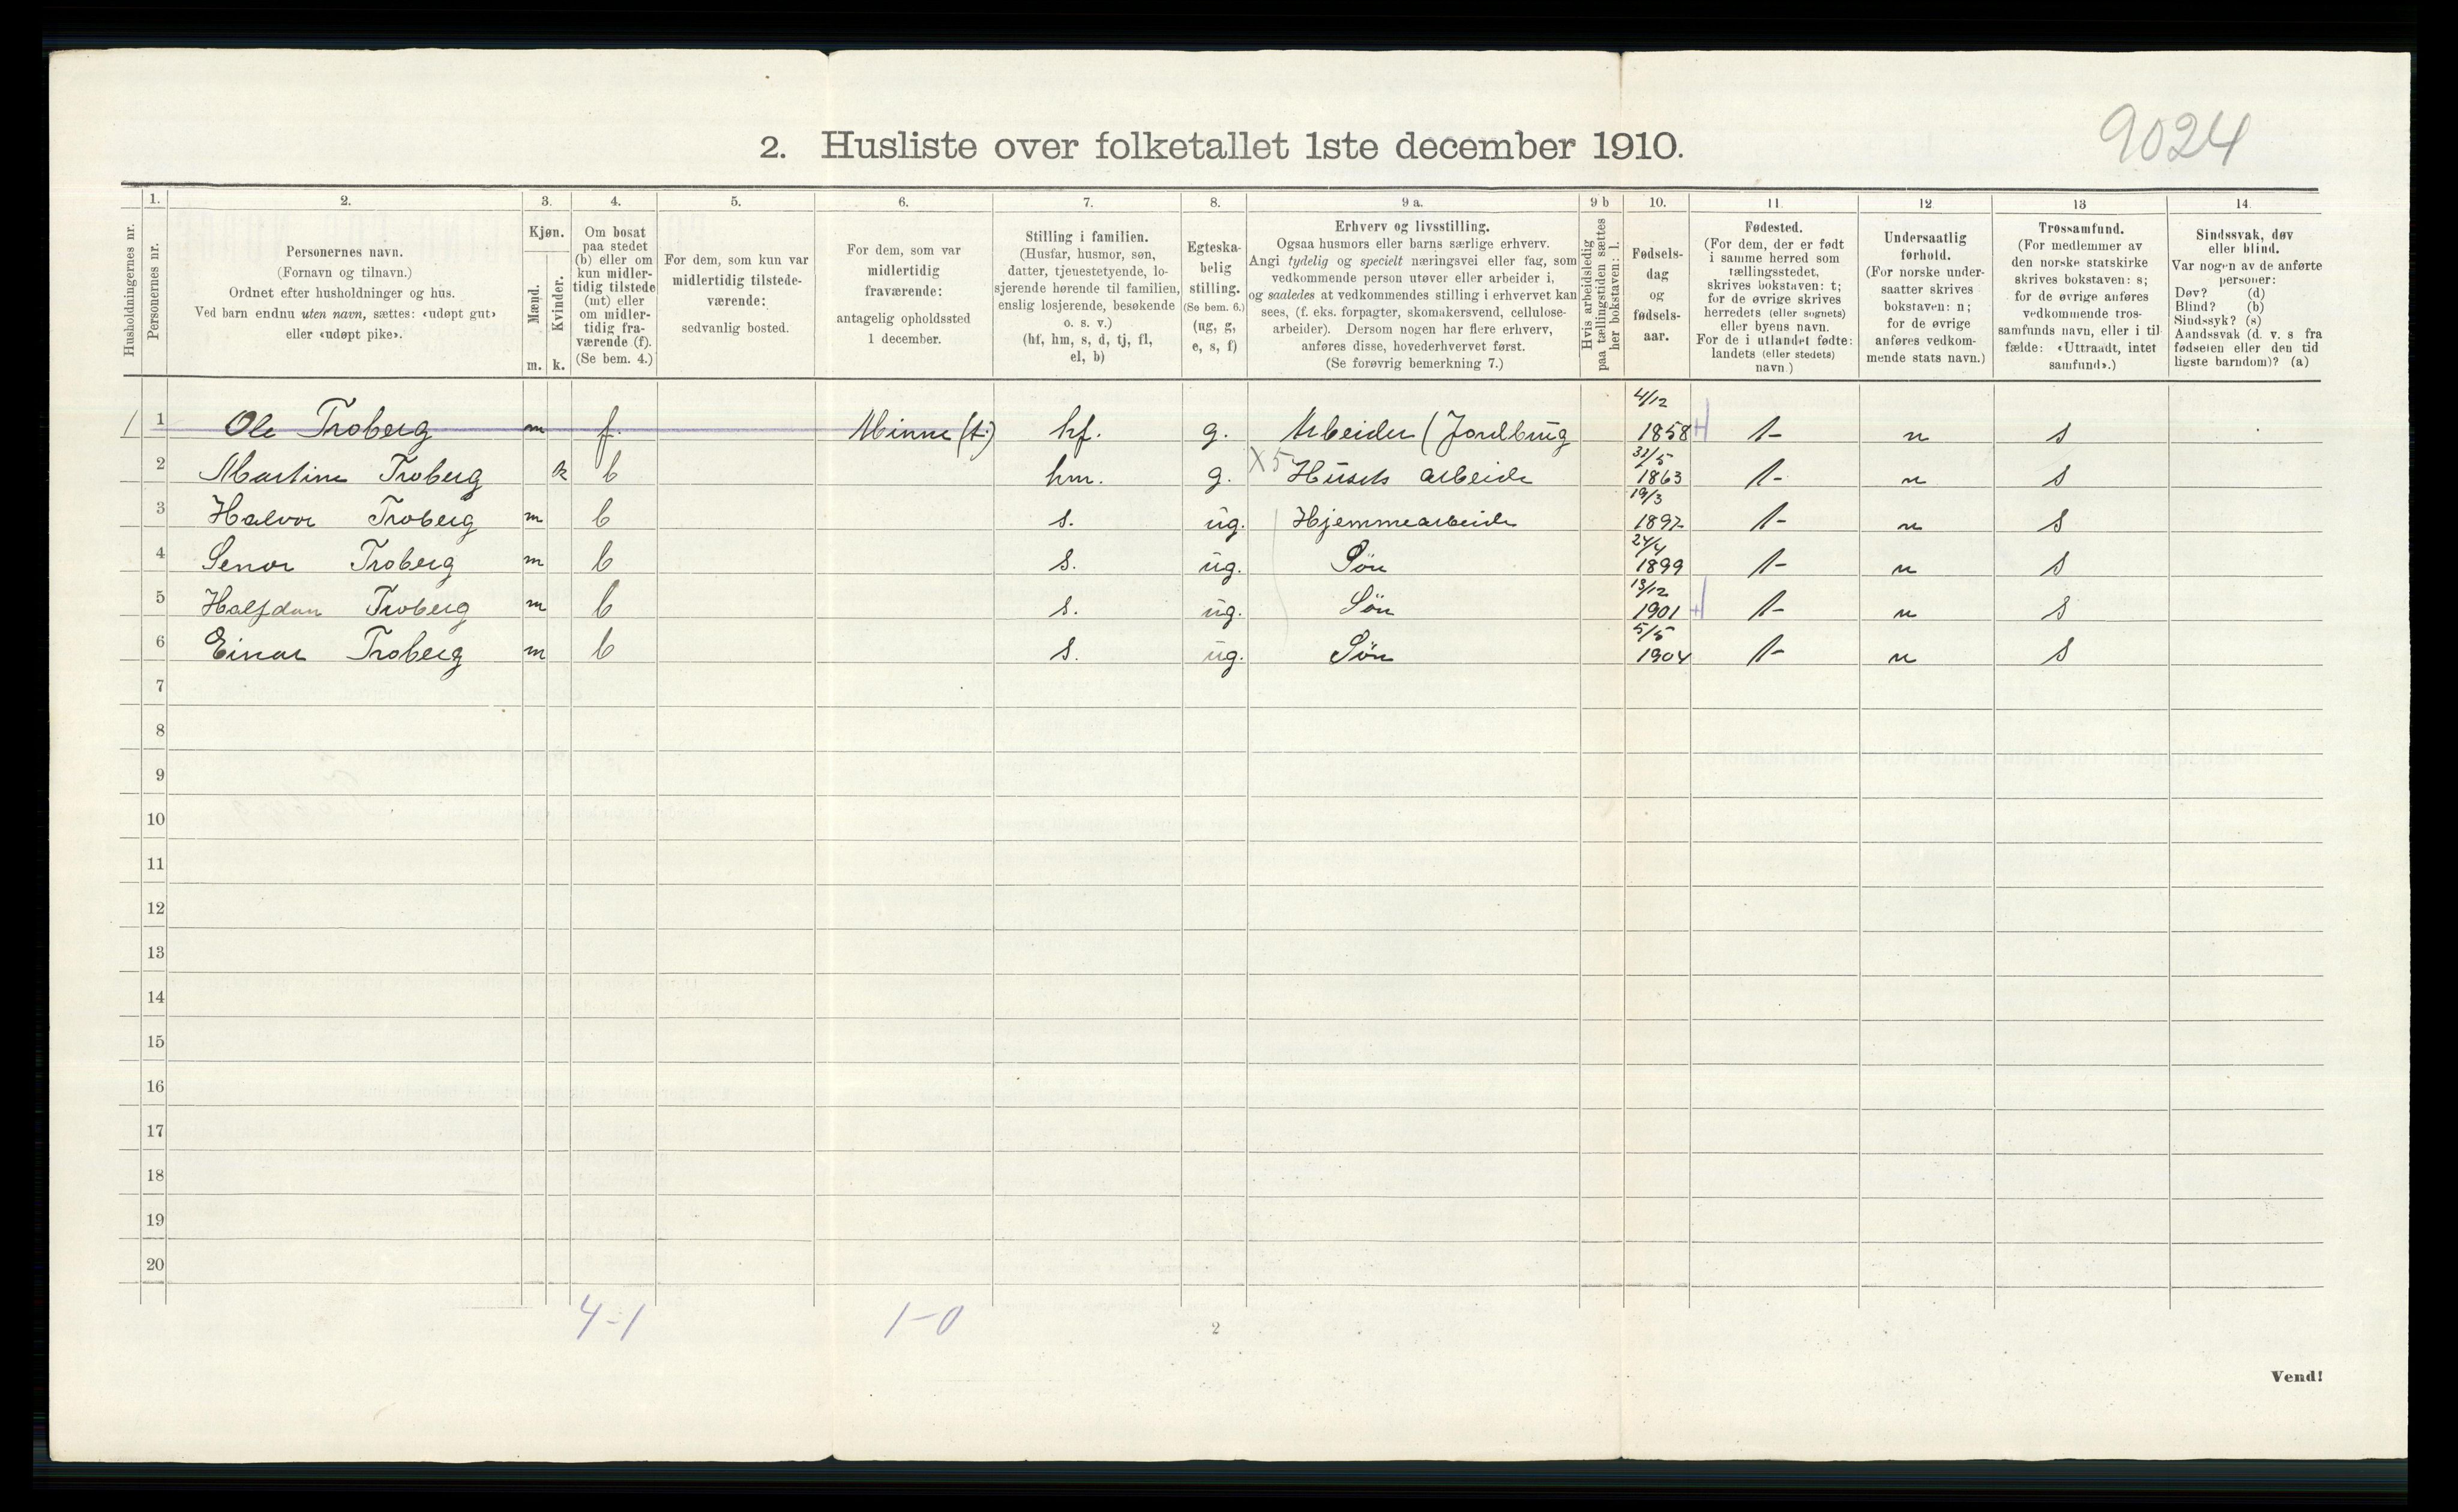 9024
2. Husliste over folketallet 1ste december 1910.
Husholdningernes nr.
1.
Personernes nr.
2.
Personernes navn.
(Fornavn og tilnavn.)
Ordnet efter husholdninger og hus.
Ved barn endnu uten navn, sættes: «udøpt gut»
eller «udøpt pike».
3.
Kjøn.
Mænd.
Kvinder.
m. k.
4.
Om bosat
paa stedet
(b) eller om
kun midler-
tidig tilstede
(mt) eller
om midler-
tidig fra-
værende (f).
(Se bem. 4.)
5.
For dem, som kun var
midlertidig tilstede-
værende:
sedvanlig bosted.
6.
For dem, som var
midlertidig
fraværende:
antagelig opholdssted
1 december.
7.
Stilling i familien.
(Husfar, husmor, søn,
datter, tjenestetyende, lo-
sjerende hørende til familien,
enslig losjerende, besøkende
o. s. v.)
(hf, hm, s, d, tj, fl,
el, b)
8.
Egteska-
belig
stilling.
(Se bem. 6.)
(ug, g,
e, s, f)
9 a.
Erhverv og livsstilling.
Ogsaa husmors eller barns særlige erhverv.
Angi tydelig og specielt næringsvei eller fag, som
vedkommende person utøver eller arbeider i,
og saaledes at vedkommendes stilling i erhvervet kan
sees, (f. eks. forpagter, skomakersvend, cellulose-
arbeider). Dersom nogen har flere erhverv,
anføres disse, hovederhvervet først.
(Se forøvrig bemerkning 7.)
9 b
Hvis arbeidsledig
paa tællingstiden sættes
her bokstaven: l.
10.
Fødsels-
dag
og
fødsels-
aar.
11.
Fødested.
(For dem, der er født
i samme herred som
tællingsstedet,
skrives bokstaven: t;
for de øvrige skrives
herredets (eller sognets)
eller byens navn.
For de i utlandet fødte:
landets (eller stedets)
navn.)
12
Undersaatlig
forhold.
(For norske under-
saatter skrives
bokstaven: n;
for de øvrige
anføres vedkom-
mende stats navn.)
13
Trossamfund.
(For medlemmer av
den norske statskirke
skrives bokstaven: s;
for de øvrige anføres
vedkommende tros-
samfunds navn, eller i til-
fælde: «Uttraadt, intet
samfund».)
14.
Sindssvak, døv
eller blind.
Var nogen av de anførte
personer:
Døv? (d)
Blind? (b)
Sindssyk? (s)
Aandssvak (d. v. s fra
fødselen eller den tid
ligste barndom)? (a)
1 1 Ole Troberg m f. Minne (t.) hf. g. Arbeider (Jordbrug 4/12 1858 t- n s
2 Martine Troberg k b hm. g. X5 Husets arbeide 31/5 1863 t- n s
3 Halvor Troberg m b s. ug. Hjemmearbeide 19/3 1897 t- n s
4 Senor Troberg m b s. ug. Søn 24/4 1899 t- n s
5 Halfdan Troberg m b s. ug. Søn 13/12 1901 t- n s
6 Einar Troberg m b s. ug. Søn 5/5 1904 t- n s
7
8
9
10
11
12
13
14
15
16
17
18
19
20
4-1 1-0
2
Vend!